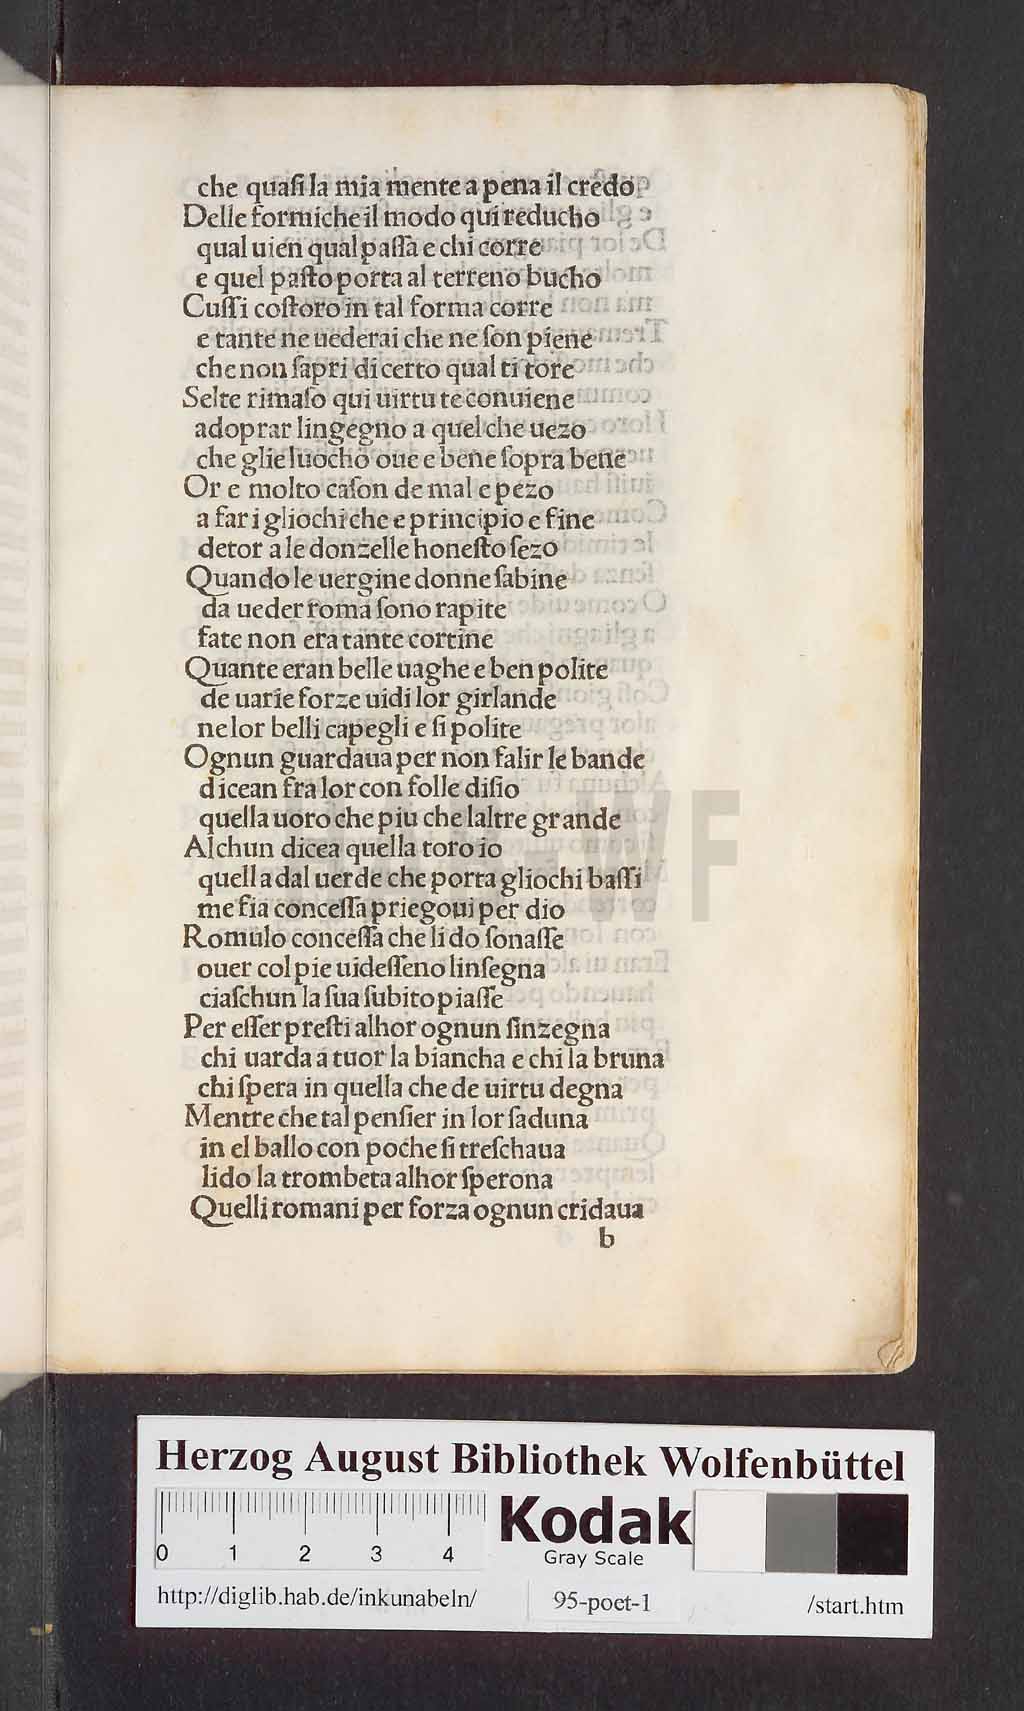 che quaſi la mia mente a pena il credo
Delle formiche il modo qui reducho
qual uien qual paſſa e chi corre
e quel paſto porta al terreno bucho
Cuſſi coſtoro in tal forma corre
e tante ne uederai che ne ſon piene
che non ſapri di certo qual ti tore
Selte rimaſo qui uirtu te conuiene
adoprar lingegno a quel che uezo
che glie luocho oue e bene ſopra bene
Or e molto caſon de mal e pezo
a far i gliochi che e principio e fine
detor a le donzelle honeſto ſezo
Quando le uergine donne ſabine
da ueder roma ſono rapite
fate non era tante cortine
Quante eran belle uaghe e ben polite
de uarie forze uidi lor girlande
ne lor belli capegli e ſi polite
Ognun guardaua per non falir le bande
dicean fra lor con folle diſio
quella uoro che piu che laltre grande
Alchun dicea quella toro io
quella dal uerde che porta gliochi baſſi
me fia conceſſa priegoui per dio
Romulo conceſſa che li do ſonaſſe
ouer col pie uideſſeno linſegna
ciaſchun la ſua ſubito piaſſe
Per eſſer preſti alhor ognun ſinzegna
chi uarda a tuor la biancha e chi la bruna
chi ſpera in quella che de uirtu degna
Mentre che tal penſier in lor ſaduna
in el ballo con poche ſi treſchaua
lido la trombeta alhor ſperona
Quelli romani per forza ognun cridaua
b
HAB-WF
Herzog August Bibliothek Wolfenbüttel
0 1 2 3 4
Kodak
Gray Scale
http://diglib.hab.de/inkunabeln/ 95-poet-1 /start.htm